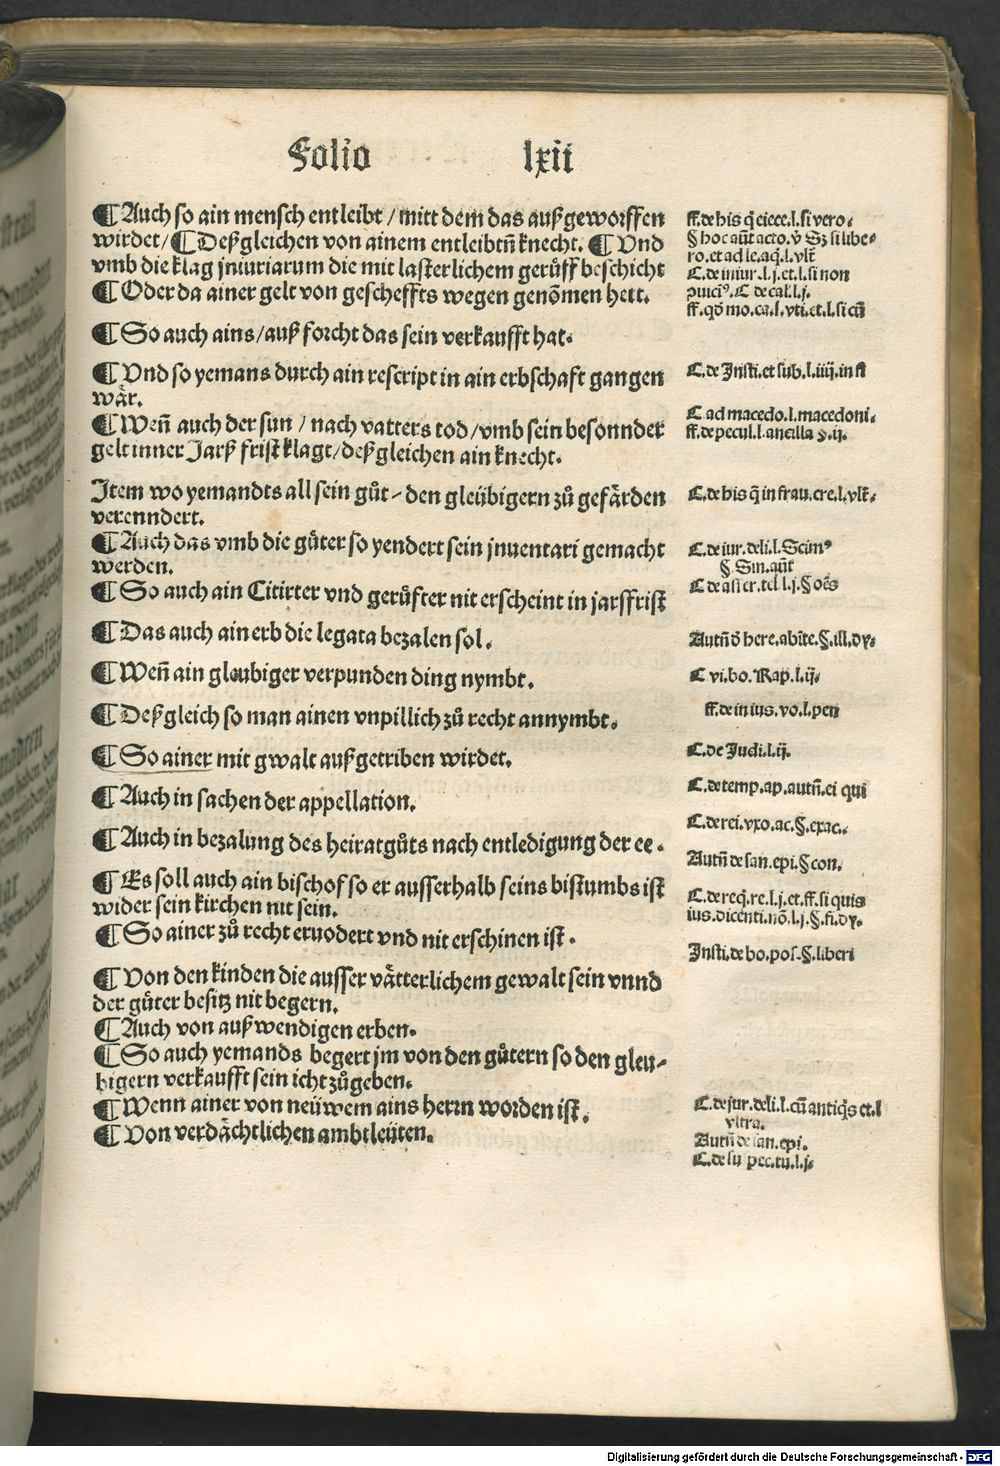 Folio lxii
¶ Auch so ain mensch entleibt / mitt dem das außgeworffen
wirdet / ¶ Deßgleichen von ainem entleibtn̄ knecht. ¶ Vnd
vmb die klag jniuriarum die mit lasterlichem gerüff beschicht
¶ Oder da ainer gelt von gescheffts wegen genōmen hett.
¶ So auch ains / auß forcht das sein verkaufft hat.
¶ Vnd so yemans durch ain rescript in ain erbschaft gangen
wär.
¶ Weñ auch der sun / nach vatters tod / vmb sein besonnder
gelt inner Jarß frist klagt / deßgleichen ain knecht.
Item wo yemandts all sein gůt - den gleübigern zů gefärden
verenndert.
¶ Auch das vmb die gůter so yendert sein jnuentari gemacht
werden.
¶ So auch ain Citirter vnd gerüfter nit erscheint in jarsffrist
¶ Das auch ain erb die legata bezalen sol.
¶ Weñ ain gleubiger verpunden ding nymbt.
¶ Deßgleich so man ainen vnpillich zů recht annymbt.
¶ So ainer mit gwalt außgetriben wirdet.
¶ Auch in sachen der appellation.
¶ Auch in bezalung des heiratgůts nach entledigung der ee.
¶ Es soll auch ain bischof so er ausserhalb seins bistumbs ist
wider sein kirchen nit sein.
¶ So ainer zů recht eruodert vnd nit erschinen ist.
¶ Von den kinden die ausser vätterlichem gewalt sein vnnd
der gůter besitz nit begern.
¶ Auch von außwendigen erben.
¶ So auch yemands begert jm von den gůtern so den gleu-
bigern verkaufft sein icht zůgeben.
¶ Wenn ainer von neüwem ains herrn worden ist.
¶ Von verdächtlichen ambtleüten.
ff. de his q̄ eiece. l. si vero.
§ hoc aūt acto. v̄ Sz si libe-
ro. et ad le. aq̄. l. vlt̄
C. de iniur. l. j. et. l. si non
C de cal. l. j.
ff. qđ mo. ca. l. vti. et. l. si cū
C. de Insti. et sub. l. iiij. in fi
C ad macedo. l. macedoni.
ff. de pecul. l. ancilla §. ij.
C. de his q̄ in frau. cre. l. vlt̄.
C. de iur. deli. l. Scim9
§ Sin. aūt
C de l. j. § oēs
Autn̄ đ here. abīte. §. ill.
C vi. bo. Rap. l. ij.
ff. de in ius. vo. l. pen
C. de Judi. l. ij.
C. de temp. ap. autn̄. ei qui
C. de rei. vxo. ac. §. exac.
Autn̄ de san. epi. § con.
C. de req̄. re. l. j. et. ff. si quis
ius. dicenti. nō. l. j. §. fi.
Insti. de bo. pos. §. liberi
C. de jur. deli. l. cū antiq̄s et. l
vltra.
Autn̄ de san. epi.
C. de su pec. tu. l. j.
Digitalisierung gefördert durch die Deutsche Forschungsgemeinschaft - DFG